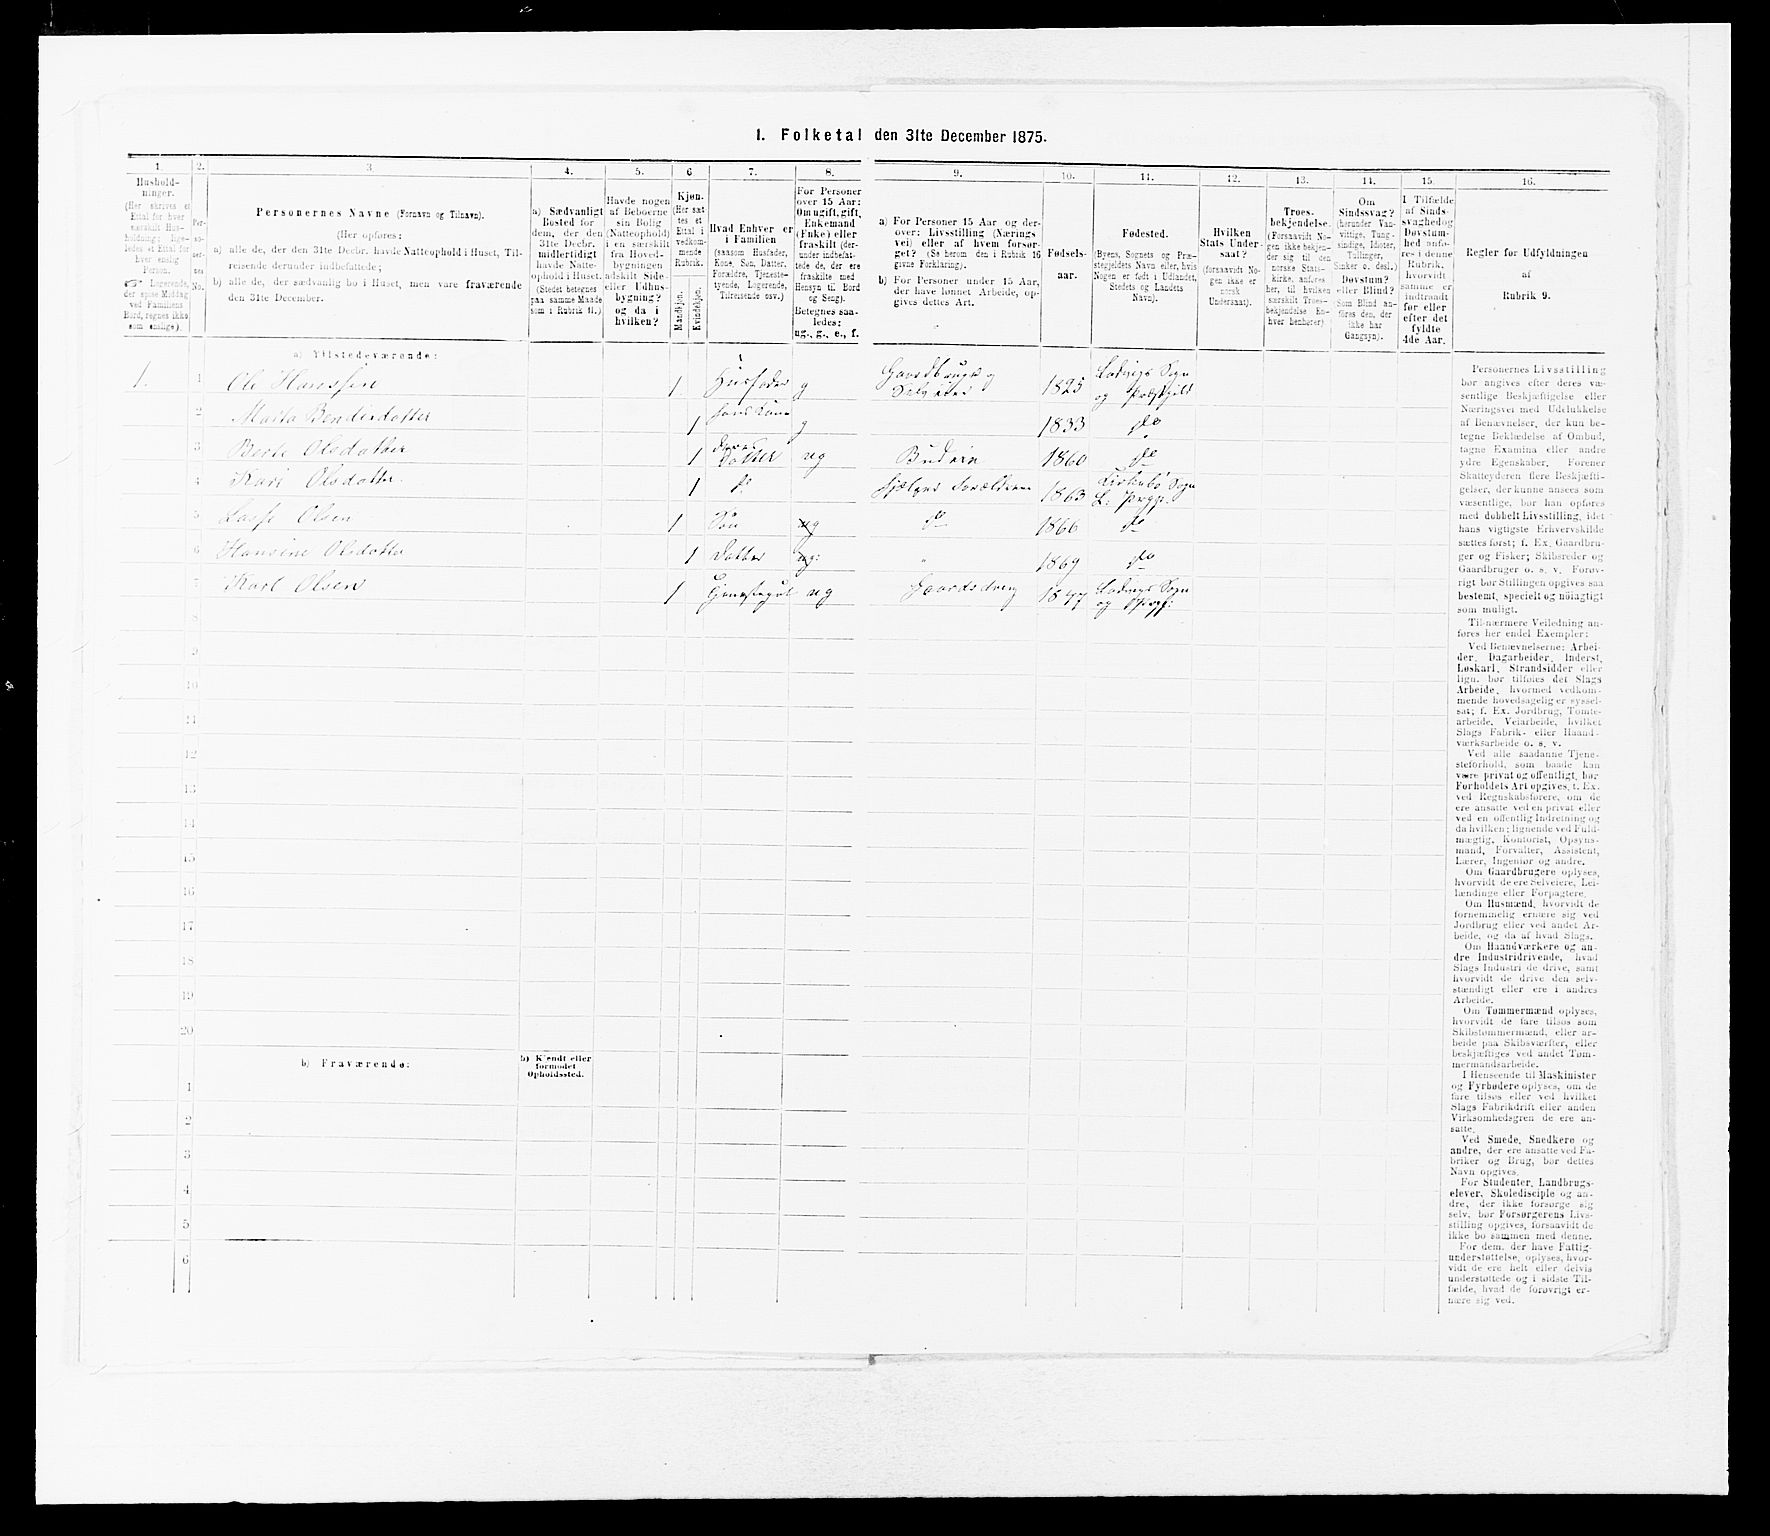 1. Folketal den 31te December 1875.
1. 2. 3. 4. 5. 6. 7. 8. 9. 10. 11. 12. 13. 14. 15. 16.
Hushold-
ninger.
(Her skrives et
Ettal for hver
særskilt Hus-
holdning; lige-
ledes et Ettal for
hver enslig
Person.
☞ Logerende,
der spise Middag
ved Familiens
Bord, regnes ikke
som enslige).
Per-
so-
ner-
nes
No.
Personernes Navne (Fornavn og Tilnavn).
(Her opføres:
a) alle de, der den 31te Decbr. havde Natteophold i Huset, Til-
reisende derunder indbefattede;
b) alle de, der sædvanlig bo i Huset, men vare fraværende
den 31te December.
a) Sædvanligt
Bosted for
dem, der den
31te Decbr.
midlertidigt
havde Natte-
ophold i Huset.
(Stedet betegnes
paa samme Maade
som i Rubrik 11.)
Havde nogen
af Beboerne
sin Bolig
(Natteophold)
i en særskilt
fra Hoved-
bygningen
adskilt Side-
eller Udhus-
bygning?
og da i
hvilken?
Kjøn.
(Her sæt
tes et
Ettal i
vedkom-
mende
Rubrik.
Mandkjøn.
Kvindekjøn.
Hvad Enhver er
i Familien
(saasom Husfader,
Kone, Søn, Datter,
Forældre, Tjeneste-
tyende, Logerende,
Tilreisende osv.)
For Personer
over 15 Aar:
Om ugift, gift,
Enkemand
(Enke) eller
fraskilt (der-
under indbefat-
tede de, der ere
fraskilte med
Hensyn til Bord
og Seng).
Betegnes saa-
ledes:
ug., g., e., f.
a) For Personer 15 Aar og der-
over: Livsstilling (Nærings
vei) eller af hvem forsør-
get? (Se herom den i Rubrik 16
givne Forklaring).
b) For Personer under 15 Aar,
der have lønnet Arbeide, op-
gives dettes Art.
Fødsels-
aar.
Fødested.
(Byens, Sognets og Præ-
stegjeldets Navn eller, hvis
Nogen er født i Udlandet,
Stedets og Landets
Navn).
Hvilken
Stats Under-
saat?
(forsaavidt No-
gen ikke er
norsk
Undersaat).
Troes-
bekjendelse.
(Forsaavidt No-
gen ikke bekjen-
der sig til den
norske Stats-
kirke, anføres
her, til hvilken
særskilt Troes-
bekjendelse En-
hver henhører).
Om
Sindssvag?
(herunder Van-
vittige, Tung-
sindige, Idioter,
Tullinger,
Sinker o. desl.)
Døvstum?
eller Blind?
(Som Blind an-
føres den, der
ikke har
Gangsyn).
I Tilfælde
af Sinds-
svaghed og
Døvstum-
hed anfø-
res i denne
Rubrik,
hvorvidt
samme er
indtraadt
før eller
efter det
fyldte
4de Aar.
Regler for Udfyldningen
af
Rubrik 9.
a) Tilstedeværende:
1. 1 Ole Hanssen 1. Husfader g Gaardbruger og Selveier 1825 Ladvigs Sogn og Præstgjeld
2 Marta Bendixdatter 1 hans Kone g 1833 do
3 Berte Olsdatter 1 Deres Datter ug Budeie 1860 do
4 Kari Olsdatter. 1 do Hjælper Forældrene 1863 Kirkebø Sogn L: Prgjs.
5 Lasse Olsen 1 Søn ug do 1866 do
6 Hansine Olsdatter 1 Datter ug: " 1869 do
7 Karl Olsen 1 Tjenestegut ug Gaardsdreng 1847 Ladvigs Sogn og Prgj:
8
9
10
11
12
13
14
15
16
17
18
19
20
b) Fraværende:
b) Kjendt eller
formodet
Opholdssted.
1
2
3
4
5
6
Personernes Livsstilling
bør angives efter deres væ-
sentlige Beskjæftigelse eller
Næringsvei med Udelukkelse
af Benævnelser, der kun be-
tegne Beklædelse af Ombud,
tagne Examina eller andre
ydre Egenskaber. Forener
Skatteyderen flere Beskjæfti-
gelser, der kunne ansees som
væsentlige, bør han opføres
med dobbelt Livsstilling, idet
hans vigtigste Erhvervskilde
sættes først; f. Ex. Gaardbru-
ger og Fisker; Skibsreder og
Gaardbruger o. s. v. Forøv-
rigt bør Stillingen opgives saa
bestemt, specielt og nöiagtigt
som muligt.
Til nærmere Veiledning an-
føres her endel Exempler:
Ved Benævnelserne: Arbei-
der, Dagarbeider, Inderst,
Løskarl, Strandsidder eller
lign. bør tilføies det Slags
Arbeide, hvormed vedkom-
mende hovedsagelig er syssel-
sat; f. Ex. Jordbrug, Tomte-
arbeide, Veiarbeide, hvilket
Slags Fabrik- eller Haand-
værksarbeide o. s. v.
Ved alle saadanne Tjene-
steforhold, som baade kan
være privat og offentligt, bør
Forholdets Art opgives, t. Ex.
ved Regnskabsførere, om de
ere ansatte ved en privat eller
ved en offentlig Indretning og
da hvilken; lignende ved Fuld-
mægtig, Kontorist, Opsyns-
mand, Forvalter, Assistent,
Lærer, Ingeniør og andre.
Om Gaardbrugere oplyses,
hvorvidt de ere Selveiere, Lei-
lændinge eller Forpagtere.
Om Husmænd, hvorvidt de
fornemmelig ernære sig ved
Jordbrug eller ved andet Ar-
beide, og da af hvad Slags.
Om Haandværkere og an-
dre Industridrivende, hvad
Slags Industri de drive, samt
hvorvidt de drive den selv-
stændigt eller ere i andres
Arbeide.
Om Tømmermænd oplyses,
hvorvidt de fare tilsøs som
Skibstømmermænd, eller ar-
beide paa Skibsværfter, eller
beskjæftiges ved andet Tøm-
mermandsarbeide.
I Henseende til Maskinister
og Fyrbødere oplyses, om de
fare tilsøs eller ved hvilket
Slags Fabrikdrift eller anden
Virksomhedsgren de ere an-
satte.
Ved Smede, Snedkere og
andre, der ere ansatte ved Fa-
briker og Brug, bør dettes
Navn opgives.
For Studenter, Landbrugs-
elever, Skoledisciple og an-
dre, der ikke forsørge sig
selv, bør Forsørgerens Livs-
stilling opgives, forsaavidt de
ikke bo sammen med denne.
For dem, der have Fattig-
understøttelse, oplyses, hvor-
vidt de ere helt eller delvis
understøttede og i sidste Til-
fælde, hvad de forøvrigt er-
nære sig ved.